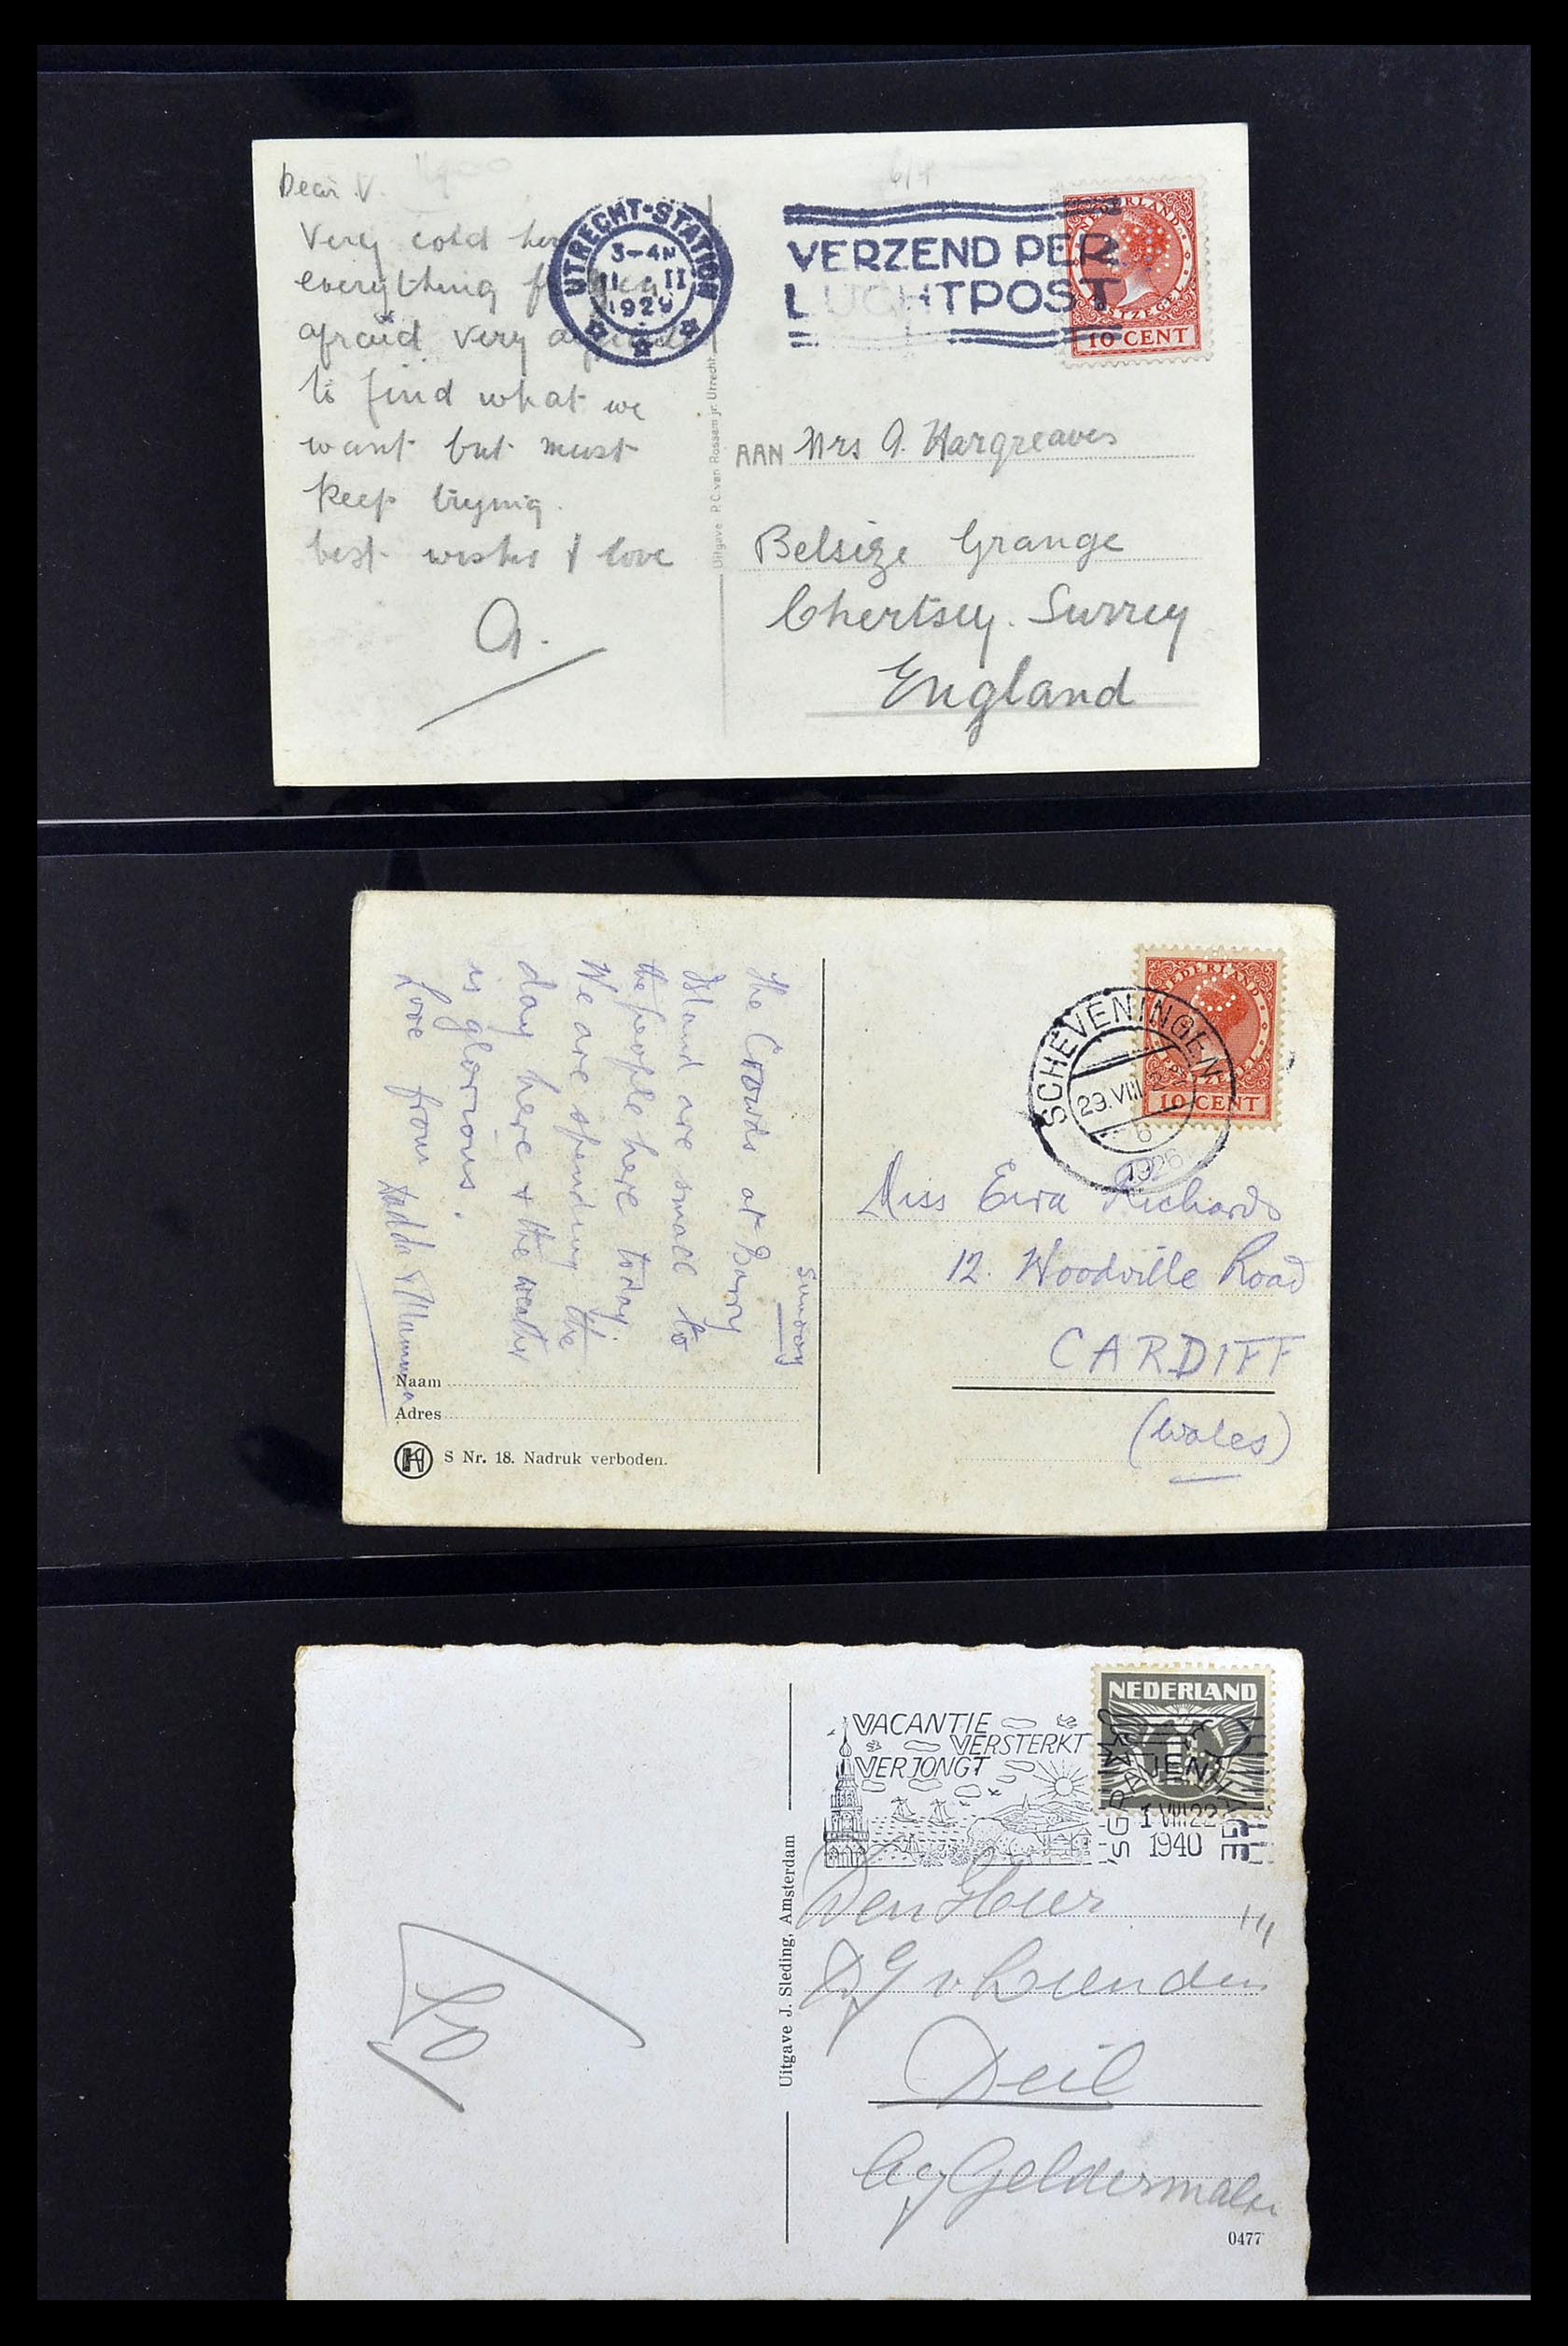 Dear V.
Very cold
everything
afraid very
to find what we
want but must
keep trying.
best wishes & love
A.
UTRECHT-STATION
3-4N
11 II
1929
VERZEND PER
LUCHTPOST
NEDERLAND
POSTZEGEL
10 CENT
Uitgave P.C. van Rossem jr. Utrecht
AAN Mrs A. Hargreaves
Belsize Grange
Chertsey. Surrey
England
Sunday
The Crowds at Barry
Island are small to
the people here today.
We are spending the
day here & the weather
is glorious.
Love from Dadda & Mamma
Naam
Adres
S Nr. 18. Nadruk verboden.
NEDERLAND
POSTZEGEL
10 CENT
SCHEVENINGEN
29.VIII
6
1926
Miss Eira Richards
12. Woodville Road
CARDIFF
(Wales)
Uitgave J. Sleding, Amsterdam
VACANTIE
VERSTERKT
VERJONGT
NEDERLAND
'S GRAVENHAGE
1 VIII 22
1940
Den Heer
v. Leenden
Deil
by Geldermalsen
0477